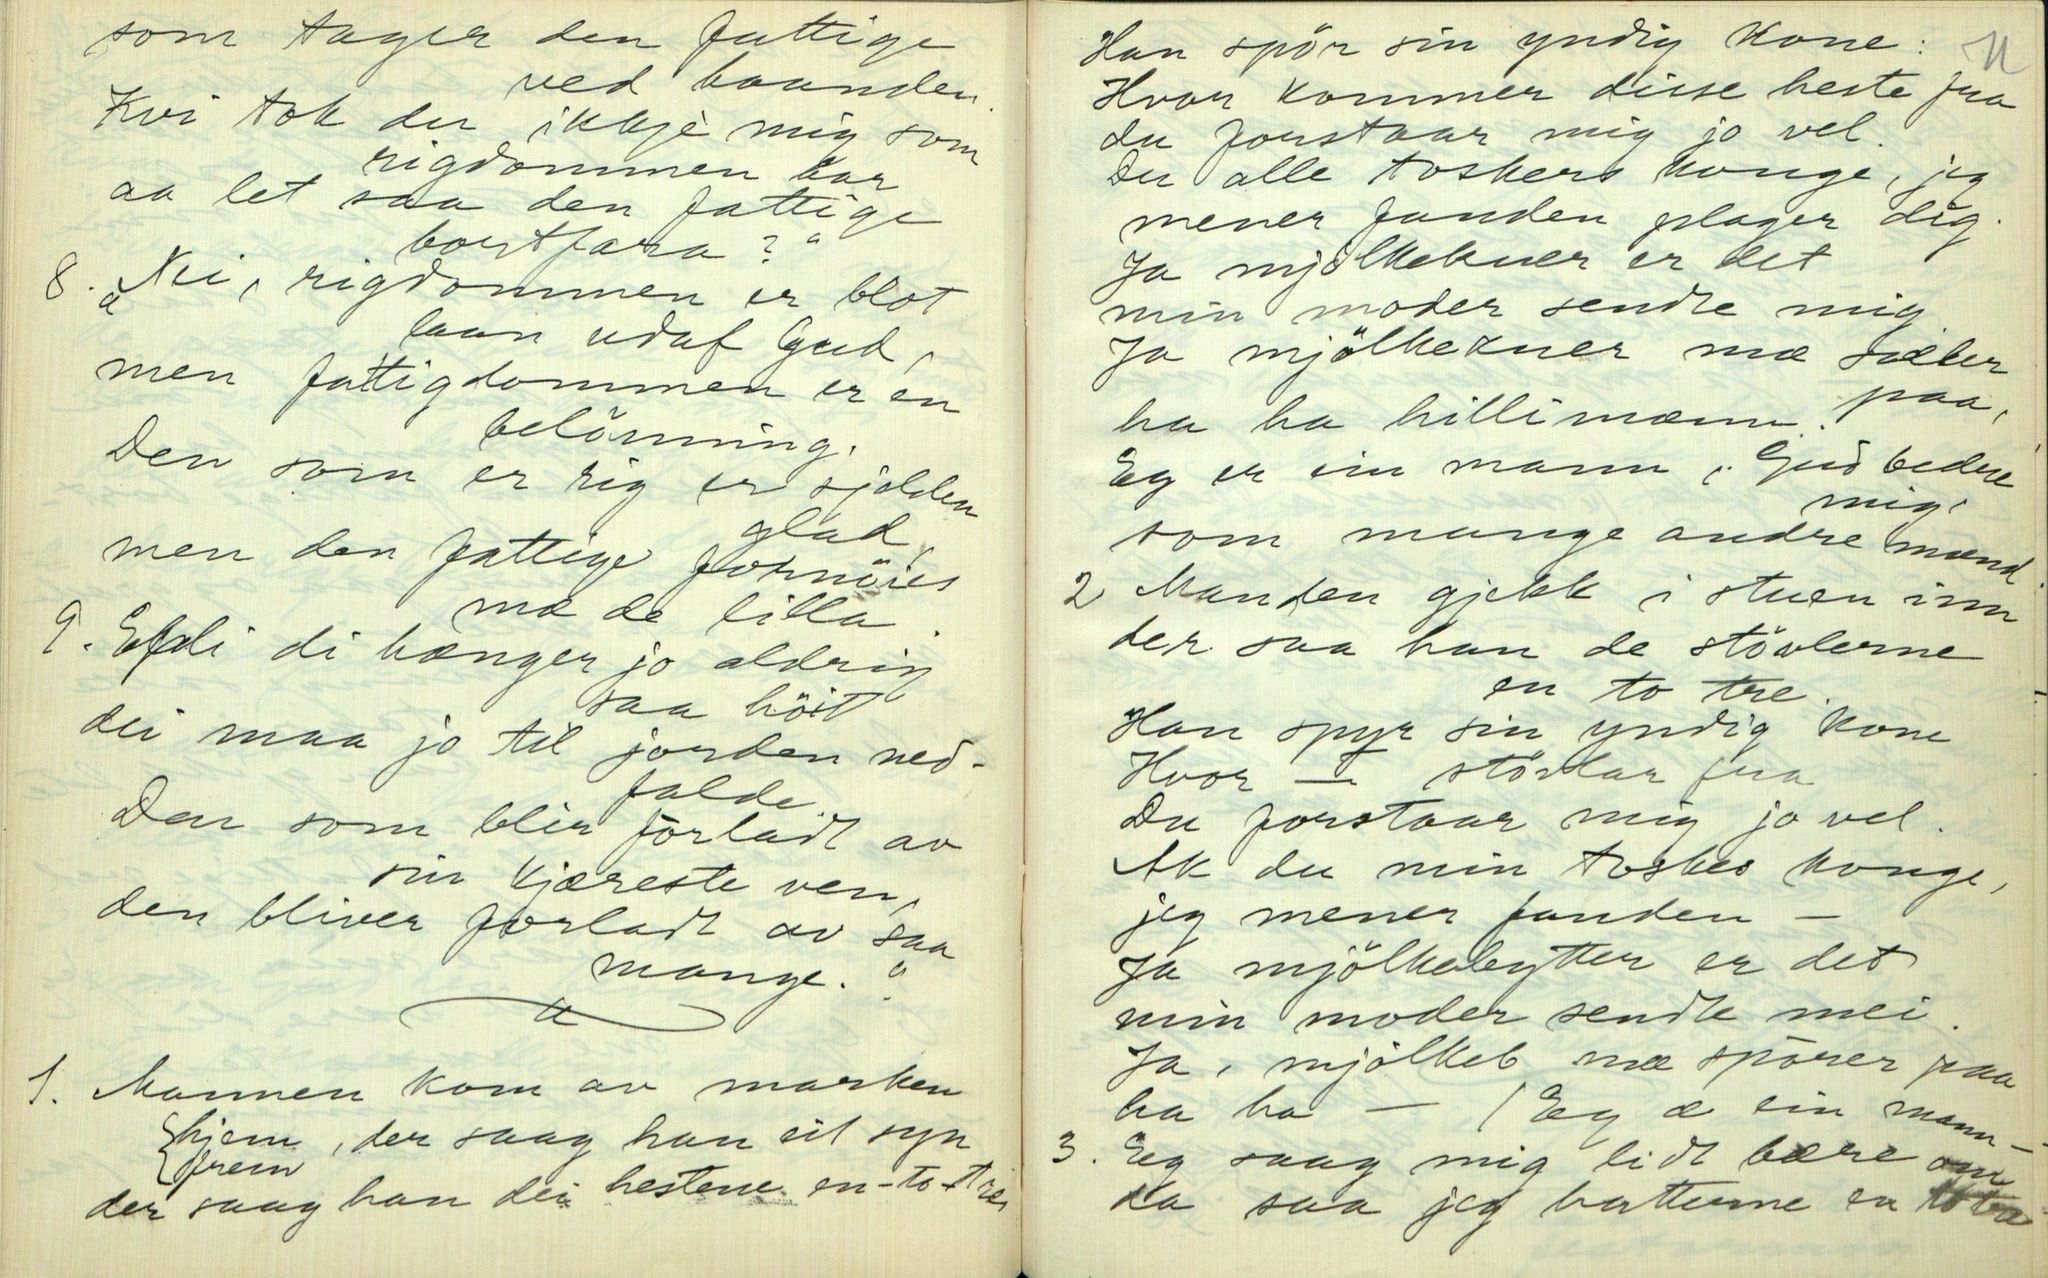 som tager den fattige
ved haanden.
Kvi tok du ikkje mig som
rigdommen har
aa let saa den fattige
bortfara?"
8. "Nei, rigdommen er blot
laan udaf Gud,
men fattigdommen er en
belönning.
Den som er rig er sjelden
glad,
men den fattige fornöies
mæ de lilla.
9. Epli di hænger jo aldrig
saa höit
dei maa jo til jorden ned-
falde.
Den som blir forladt av
sin kjæreste ven,
den bliver forladt av saa
mange."
1. Mannen kom av marken
hjem, der saag han eit syn
frem
der saag han dei hestene en-to-tre
11
Han spör sin yndig kone:
Hvor kommer disse heste fra
du forstaar mig jo vel.
Du alle toskers konge, jeg
mener fanden plager dig.
Ja mjölkekuer er det
min moder sendte mig
Ja mjölkekuer mæ sæler
paa,
ha ha hillimænn.
Eg er ein mann, Gud bedre
mig,
som mange andre mænd.
2 Manden gjekk i stuen inn
der saa han de stövlerne
en to tre.
Han spyr sin yndig kone
Hvor — stövlar fra
Du forstaar mig jo vel.
Ak du min toskes konge,
jeg mener fanden —
Ja mjölkebytter er det
min moder sendte mei.
Ja, mjölkeb mæ sporer paa
ha ha — / Eg æ ein mann —
3. Eg saag mig lidt bære om
da saa jeg hatterne en to tre